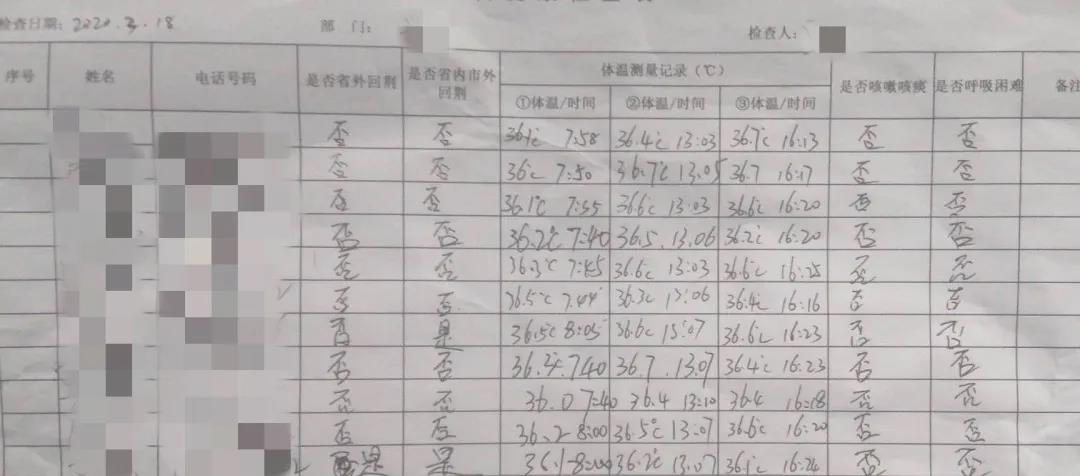 检查日期: 2020.3.18 部 门: 检查人:
序号 姓名 电话号码 是否省外回荆 是否省内市外回荆 体温测量记录（℃） 是否咳嗽咳痰 是否呼吸困难 备注
①体温/时间 ②体温/时间 ③体温/时间
否 否 36.1℃ 7:58 36.4℃ 13:03 36.7℃ 16:13 否 否
否 否 36℃ 7:50 36.7℃ 13:05 36.7 16:17 否 否
否 否 36.1℃ 7:55 36.6℃ 13:03 36.6℃ 16:20 否 否
否 否 36.2℃ 7:40 36.5. 13.06 36.2℃ 16:20 否 否
否 否 36.3℃ 7:45 36.6℃ 13:03 36.6℃ 16:25 否 否
否 否 36.5℃ 7.44 36.3℃ 13:06 36.4℃ 16:16 否 否
否 是 36.5℃ 8:05 36.6℃ 13:07 36.6℃ 16:23 否 否
否 否 36.2℃ 7:40 36.7. 13.07 36.4℃ 16:23 否 否
否 否 36.0 7:40 36.4 13:10 36.4 16:18 否 否
否 否 36.2 8:00 36.5℃ 13:07 36.6℃ 16:20 否 否
是 是 36.1 8:00 36.2℃ 13:07 36.1℃ 16:24 否 否